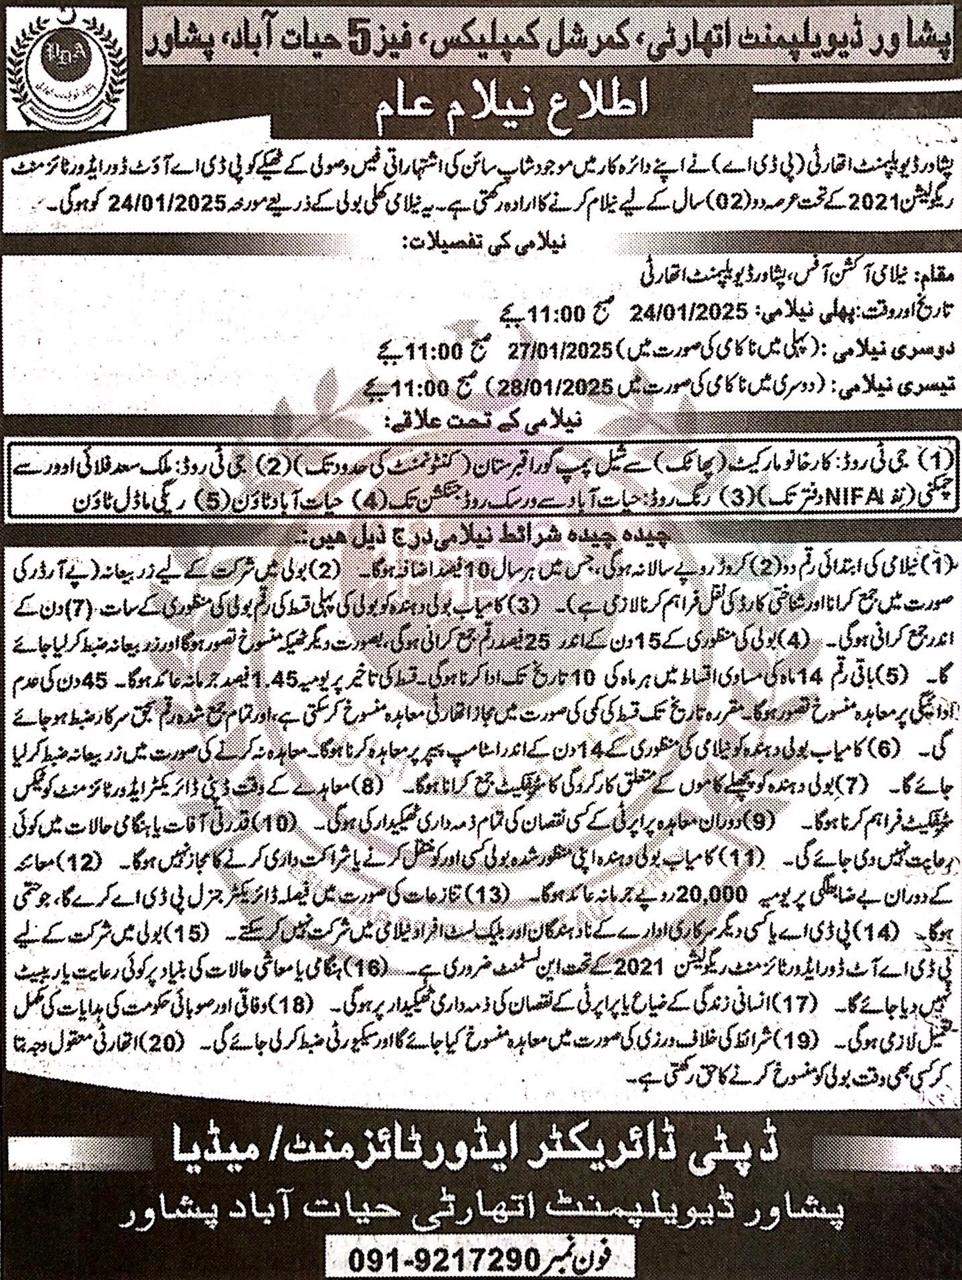 پشاور ڈیویلپمنٹ اتھارٹی، کمرشل کمپلیکس، فیز 5 حیات آباد، پشاور
PDA
اطلاع نیلام عام
پشاور ڈیویلپمنٹ اتھارٹی (پی ڈی اے) نے اپنے دائرہ کار میں موجود شاپ سائن کی اشتہاراتی فیس وصولی کے ٹھیکے کو پی ڈی اے آؤٹ ڈور ایڈورٹائزمنٹ
ریگولیشن 2021 کے تحت عرصہ دو (02) سال کے لیے نیلام کرنے کا ارادہ رکھتی ہے۔ یہ نیلامی کھلی بولی کے ذریعے مورخہ 24/01/2025 کو ہوگی۔
نیلامی کی تفصیلات:
مقام: نیلامی آکشن آفس، پشاور ڈیویلپمنٹ اتھارٹی
تاریخ اور وقت: پہلی نیلامی: 24/01/2025 صبح 11:00 بجے
دوسری نیلامی: (پہلی میں ناکامی کی صورت میں) 27/01/2025 صبح 11:00 بجے
تیسری نیلامی: (دوسری میں ناکامی کی صورت میں 28/01/2025) صبح 11:00 بجے
نیلامی کے تحت علاقے:
(1) جی ٹی روڈ: کارخانو مارکیٹ (پھاٹک) سے شیل پمپ گورا قبرستان (کنٹونمنٹ کی حدود تک) (2) جی ٹی روڈ: ملک سعد فلائی اوور سے
چمکنی (نفا NIFA دفتر تک) (3) رنگ روڈ: حیات آباد سے ورسک روڈ جنکشن تک (4) حیات آباد ٹاؤن (5) ریگی ماڈل ٹاؤن
چیدہ چیدہ شرائط نیلامی درج ذیل ھیں:۔
(1) نیلامی کی ابتدائی رقم دو (2) کروڑ روپے سالانہ ہوگی، جس میں ہر سال 10 فیصد اضافہ ہوگا۔ (2) بولی میں شرکت کے لیے زر بیعانہ (پے آرڈر کی
صورت میں جمع کرانا اور شناختی کارڈ کی نقل فراہم کرنا لازمی ہے)۔ (3) کامیاب بولی دہندہ کو بولی کی پہلی قسط کی رقم بولی کی منظوری کے سات (7) دن کے
اندر جمع کرانی ہوگی۔ (4) بولی کی منظوری کے 15 دن کے اندر 25 فیصد رقم جمع کرانی ہوگی، بصورت دیگر ٹھیکہ منسوخ تصور ہوگا اور زر بیعانہ ضبط کر لیا جائے
گا۔ (5) باقی رقم 14 ماہ کی مساوی اقساط میں ہر ماہ کی 10 تاریخ تک ادا کرنا ہوگی۔ قسط کی تاخیر پر یومیہ 1.45 فیصد جرمانہ عائد ہوگا۔ 45 دن کی عدم
ادائیگی پر معاہدہ منسوخ تصور ہوگا۔ مقررہ تاریخ تک قسط کی کمی کی صورت میں مجاز اتھارٹی معاہدہ منسوخ کر سکتی ہے، اور تمام جمع شدہ رقم بحق سرکار ضبط ہو جائے
گی۔ (6) کامیاب بولی دہندہ کو نیلامی کی منظوری کے 14 دن کے اندر اسٹامپ پیپر پر معاہدہ کرنا ہوگا۔ معاہدہ نہ کرنے کی صورت میں زر بیعانہ ضبط کر لیا
جائے گا۔ (7) بولی دہندہ کو پچھلے کاموں کے متعلق کارکردگی کا سرٹیفکیٹ جمع کرانا ہوگا۔ (8) معاہدے کے وقت ڈپٹی ڈائریکٹر ایڈورٹائزمنٹ کو ٹیکس
سرٹیفکیٹ فراہم کرنا ہوگا۔ (9) دوران معاہدہ پراپرٹی کے کسی نقصان کی تمام ذمہ داری ٹھیکیدار کی ہوگی۔ (10) قدرتی آفات یا ہنگامی حالات میں کوئی
رعایت نہیں دی جائے گی۔ (11) کامیاب بولی دہندہ اپنی منظور شدہ بولی کسی اور کو منتقل کرنے یا شراکت داری کرنے کا مجاز نہیں ہوگا۔ (12) معائنہ
کے دوران بے ضابطگی پر یومیہ 20,000 روپے جرمانہ عائد ہوگا۔ (13) تنازعات کی صورت میں فیصلہ ڈائریکٹر جنرل پی ڈی اے کرے گا، جو حتمی
ہوگا۔ (14) پی ڈی اے یا کسی دیگر سرکاری ادارے کے نادہندگان اور بلیک لسٹ افراد نیلامی میں شرکت نہیں کر سکتے۔ (15) بولی میں شرکت کے لیے
پی ڈی اے آؤٹ ڈور ایڈورٹائزمنٹ ریگولیشن 2021 کے تحت این لسٹمنٹ ضروری ہے۔ (16) ہنگامی یا معاشی حالات کی بنیاد پر کوئی رعایت یا ریبیٹ
نہیں دیا جائے گا۔ (17) انسانی زندگی کے ضیاع یا پراپرٹی کے نقصان کی ذمہ داری ٹھیکیدار پر ہوگی۔ (18) وفاقی اور صوبائی حکومت کی ہدایات کی مکمل
تعمیل لازمی ہوگی۔ (19) شرائط کی خلاف ورزی کی صورت میں معاہدہ منسوخ کیا جائے گا اور سیکیورٹی ضبط کر لی جائے گی۔ (20) اتھارٹی معقول وجہ بتا
کر کسی بھی وقت بولی کو منسوخ کرنے کا حق رکھتی ہے۔
ڈپٹی ڈائریکٹر ایڈورٹائزمنٹ/ میڈیا
پشاور ڈیویلپمنٹ اتھارٹی حیات آباد پشاور
فون نمبر 091-9217290